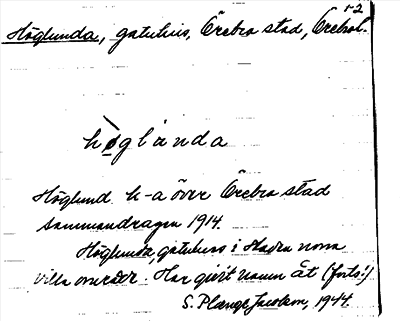 52
Höglunda, gatuhus, Örebro stad, Örebrol.
höglunda
Höglund h-a över Örebro stad
sammandragen 1914.
Höglunda gatuhus i Norra
villa området. Har givit namn åt (forts!)
S. Plænge Jacobson, 1944.